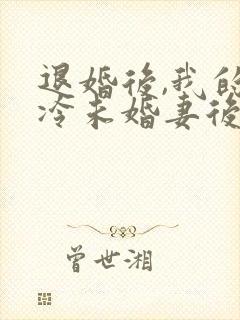 退婚後,我的
冷未婚妻後
曾世湘